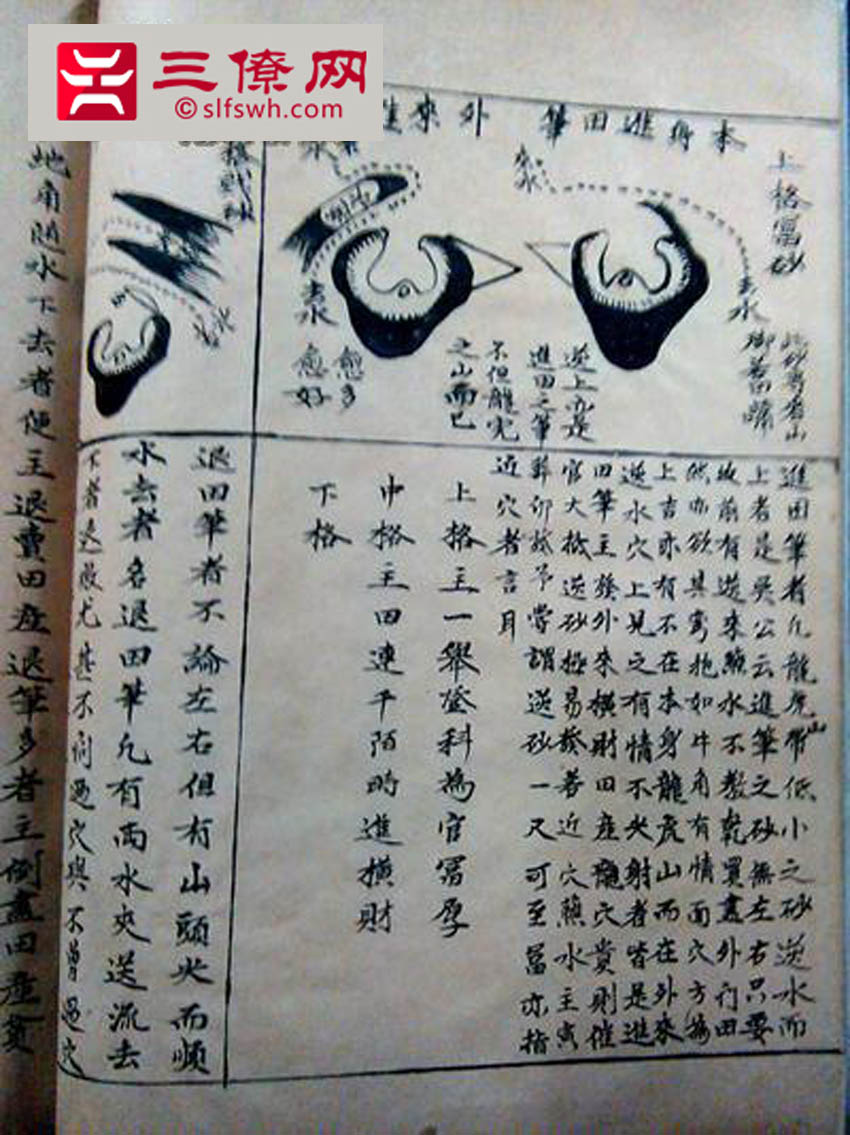 三僚网
©slfswh.com
上格富砂
本身進田筆
外來進
去水
去水
逆上亦是
進田之筆
不但龍虎
之山而已
愈多
愈好
去水
進田筆者凡龍虎山帶低小之砂逆水而
上者是吳公云進筆之砂無左右只要
收前有逆來鎖水不教乾買盡外門田
然亦欲其弯抱如牛角有情面穴方為
上吉亦有不在本身龍虎山而在外來
逆水穴上見之有情不尖射者皆是進
田筆主發外來橫財田產龍穴貴則催
官大抵逆砂極易發若近穴鎖水主寅
葬卯發予嘗謂逆砂一尺可至富亦指
近穴者言耳
上格主一舉登科為官富厚
中格主田連千陌時進橫財
下格
退田筆者不論左右但有山頭尖而順
水去者名退田筆凡有兩水夾送流去
不若是故尤甚不問過穴與不曾過穴
地角随水下去者便主退賣田產退筆多者主倒盡田產貧